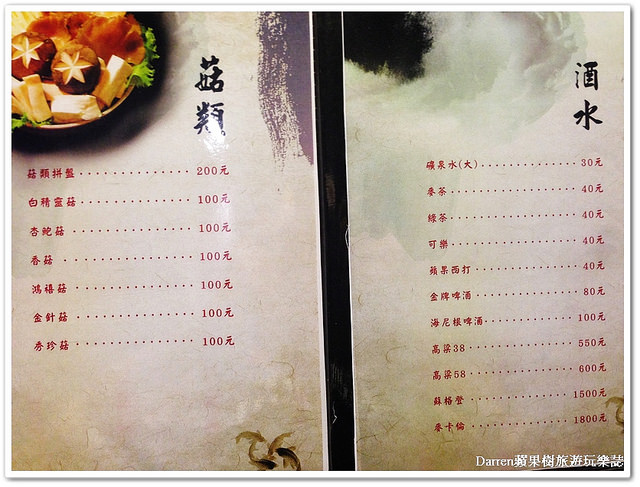 菇類
菇類拼盤 200元
白精靈菇 100元
杏鮑菇 100元
香菇 100元
鴻禧菇 100元
金針菇 100元
秀珍菇 100元
酒水
礦泉水(大) 30元
麥茶 40元
綠茶 40元
可樂 40元
蘋果西打 40元
金牌啤酒 80元
海尼根啤酒 100元
高梁38 550元
高梁58 600元
蘇格登 1500元
麥卡倫 1800元
Darren蘋果樹旅遊玩樂誌